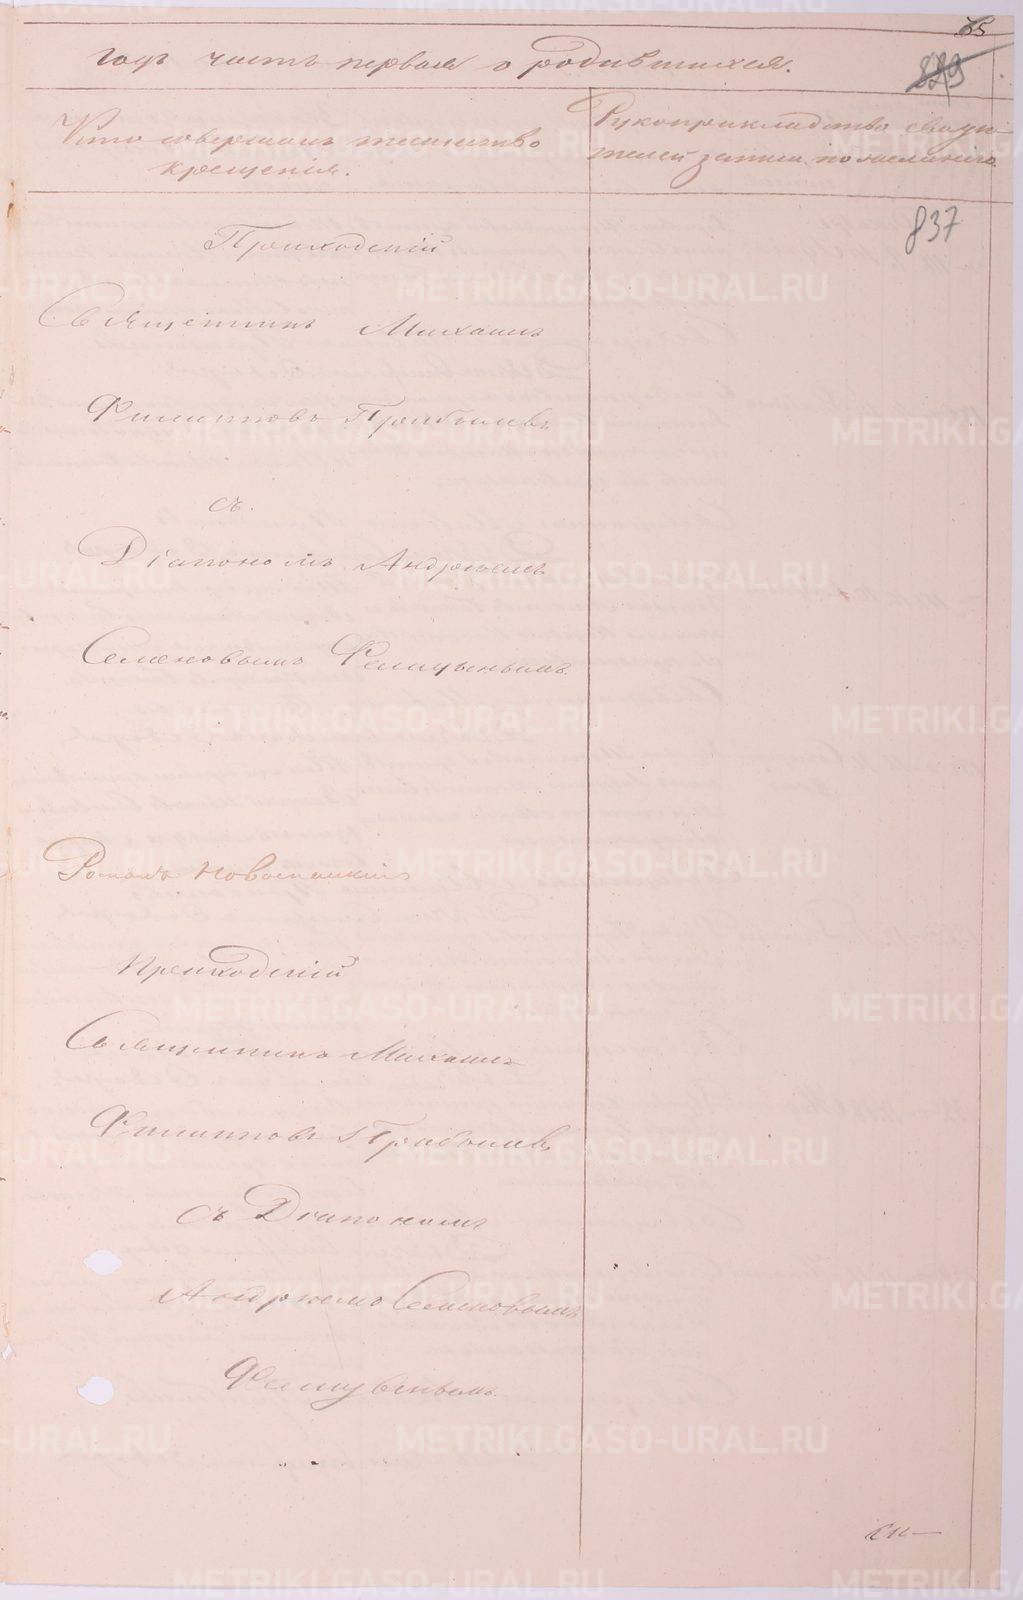 85
годъ часть первая о родившихся.
829
Кто совершалъ таинство
крещенія.
Рукоприкладство свидѣ-
телей записи по желанію.
837
Приходскій
Священникъ Михаилъ
Филипповъ Прибылевъ
съ
Діакономъ Андреемъ
Семеновымъ Фелицынымъ.
Приходскій
Священникъ Михаилъ
Филипповъ Прибылевъ
съ Діакономъ
Андреемъ Семеновымъ
METRIKI.GASO-URAL.RU